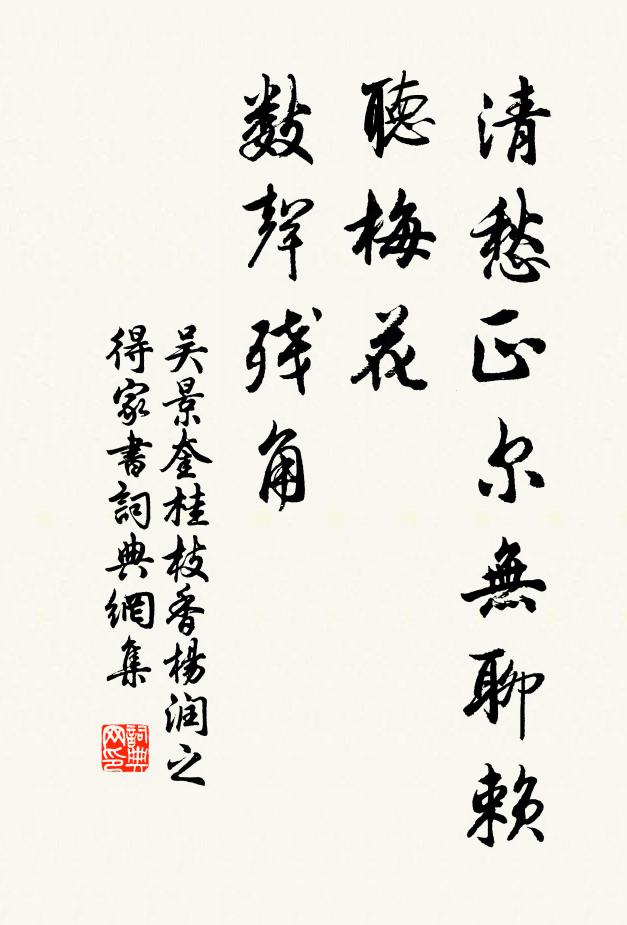 清愁正尔無聊賴
聽梅花
數聲殘角
吴景奎桂枝香楊润之
得家書詞典網集
詞典网印